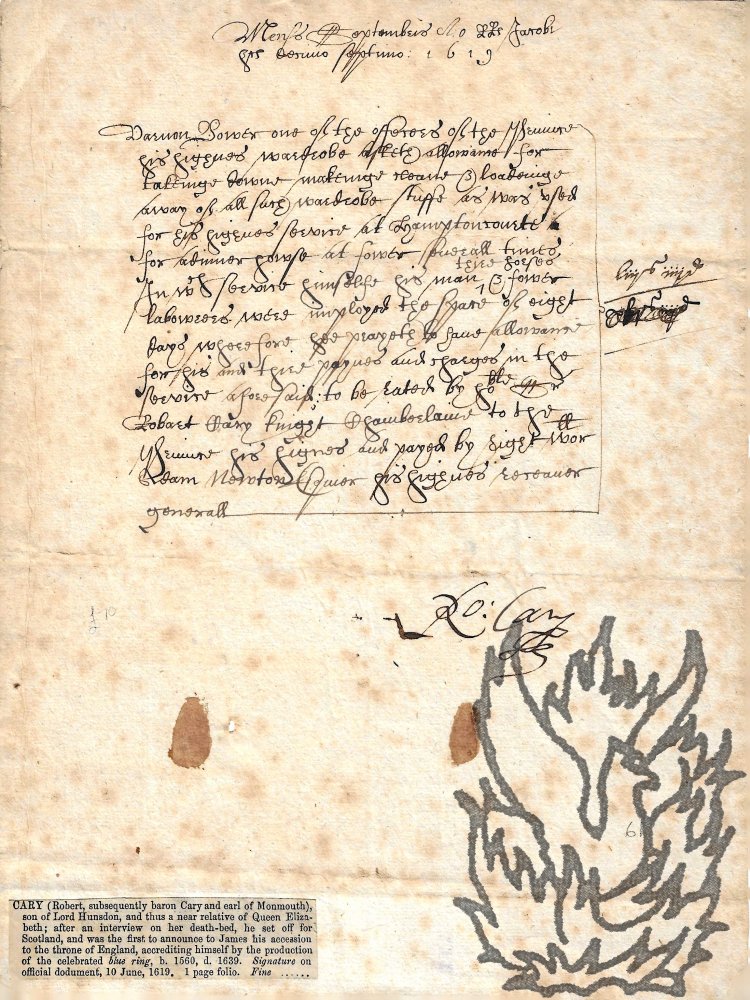 Mensis Septembris A.o RRs Jacobi
decimo septimo: 1619
Varnon Bower one of the officers of the
his highnes wardrobe asketh allowance for
takeinge downe makeinge cleane & loadeinge
away of all such wardrobe stuffe as was used
for his highnes service at Hamptoncourte
for a dinner howse at fower severall times
three horses
In wch service himselfe his man & fower
labowrers were imployed the space of eight
days wherefore hee prayeth to have allowance
for his and their paynes and charges in the
service aforesaid: to be rated by he ble Sr
Robart Cary knight Chamberlaine to the
his highnes and payed by right Wor ll
Adam Newton Esquier his highnes receaver
generall
Ro: Cary
£10
6
CARY (Robert, subsequently baron Cary and earl of Monmouth),
son of Lord Hunsdon, and thus a near relative of Queen Eliza-
beth; after an interview on her death-bed, he set off for
Scotland, and was the first to announce to James his accession
to the throne of England, accrediting himself by the production
of the celebrated blue ring, b. 1560, d. 1639. Signature on
official dodument, 10 June, 1619. 1 page folio. Fine ......